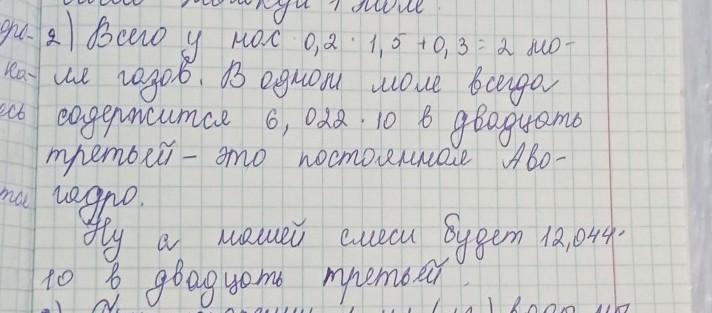 2) Всего у нас 0,2 · 1,5 + 0,3 = 2 мо-
ля газов. В одном моле всегда
содержится 6,022 · 10 в двадцать
третьей – это постоянная Аво-
гадро.
Ну а нашей смеси будет 12,044 ·
10 в двадцать третьей.